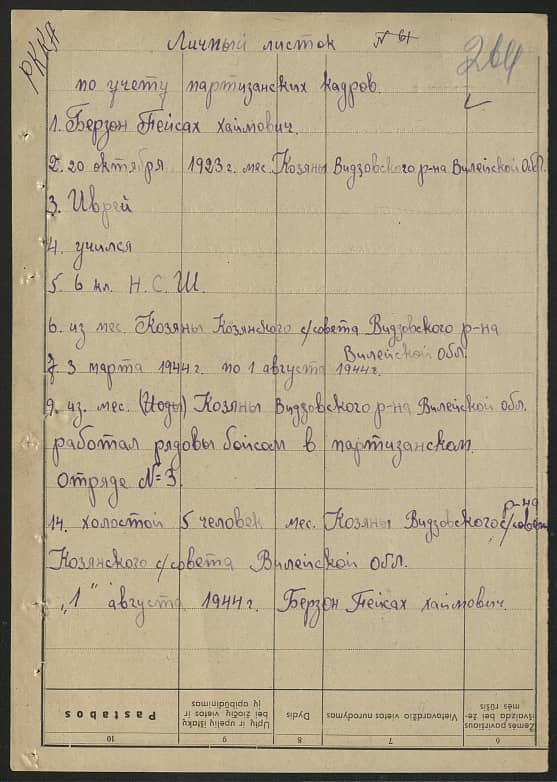 РККА
Личный листок № 61
264
по учету партизанских кадров.
1. Берзон Пейсах Хаимович.
2. 20 октября 1923 г. мес. Козяны Видзовского р-на Вилейской обл.
3. Иврей
4. учился
5. 6 кл. Н.С.Ш.
6. из мес. Козяны Козянского с/совета Видзовского р-на
Вилейской обл.
7. 3 марта 1944 г. по 1 августа 1944 г.
9. из. мес. (Иоды) Козяны Видзовского р-на Вилейской обл.
работал рядовы бойсом в партизанском
отряде № 3.
14. холостой 5 человек мес. Козяны Видзовского р-на с/совета
Козянского с/совета Вилейской обл.
„1" августа 1944 г. Берзон Пейсах Хаимович.
Pastabos
Upių ir upelių ištakų bei žiočių vietos ir jų apibūdinimas
Dydis
Vietovardžio vietos nurodymas
Žemės paviršiaus išvaizda bei žemės rūšis
10
9
8
7
6